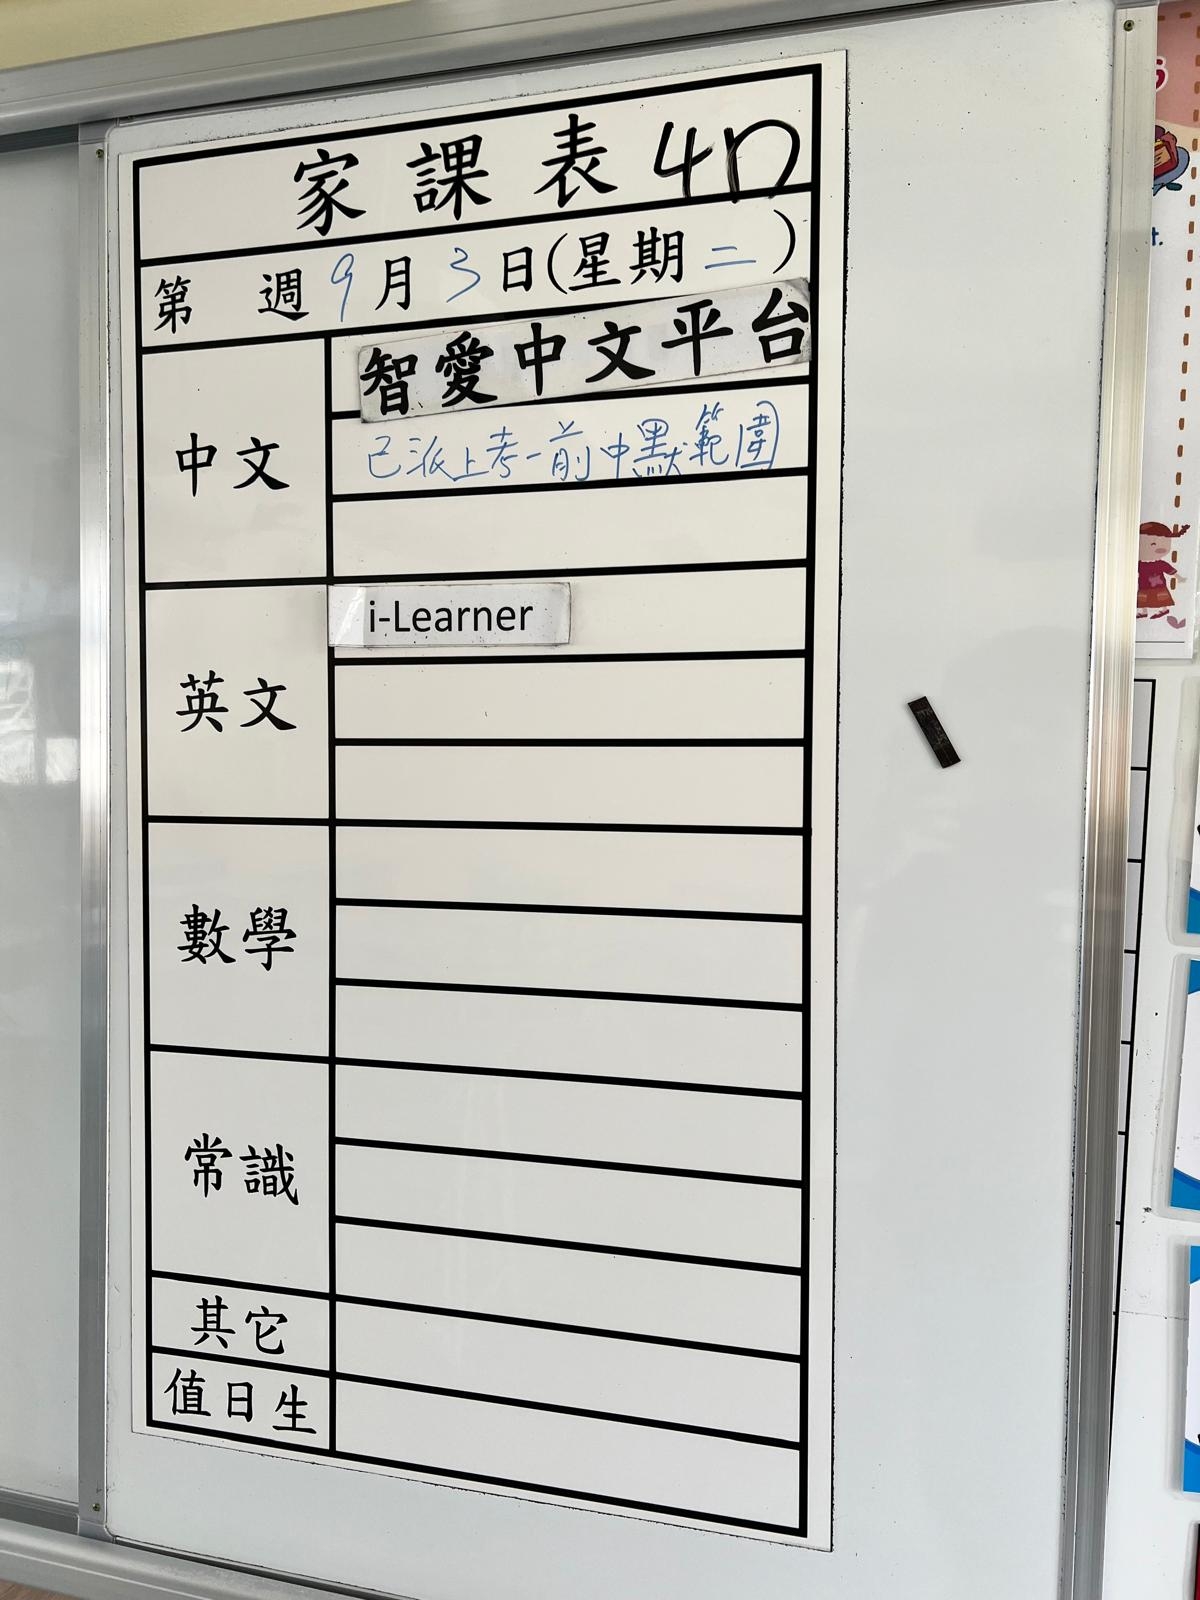 家課表 4D
第 週 9月3日(星期二)
中文
智愛中文平台
已派上考一前中默範圍
英文
i-Learner
數學
常識
其它
值日生